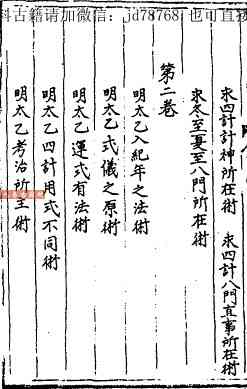 科古籍请加微信：jd78768 也可直接
求四計計神所在術 求四計八門直事所在術
求冬至夏至八門所在術
第二卷
明太乙入紀年之法術
明太乙式儀之原術
明太乙運式有法術
明太乙四計用式不同術
明太乙考治所主術